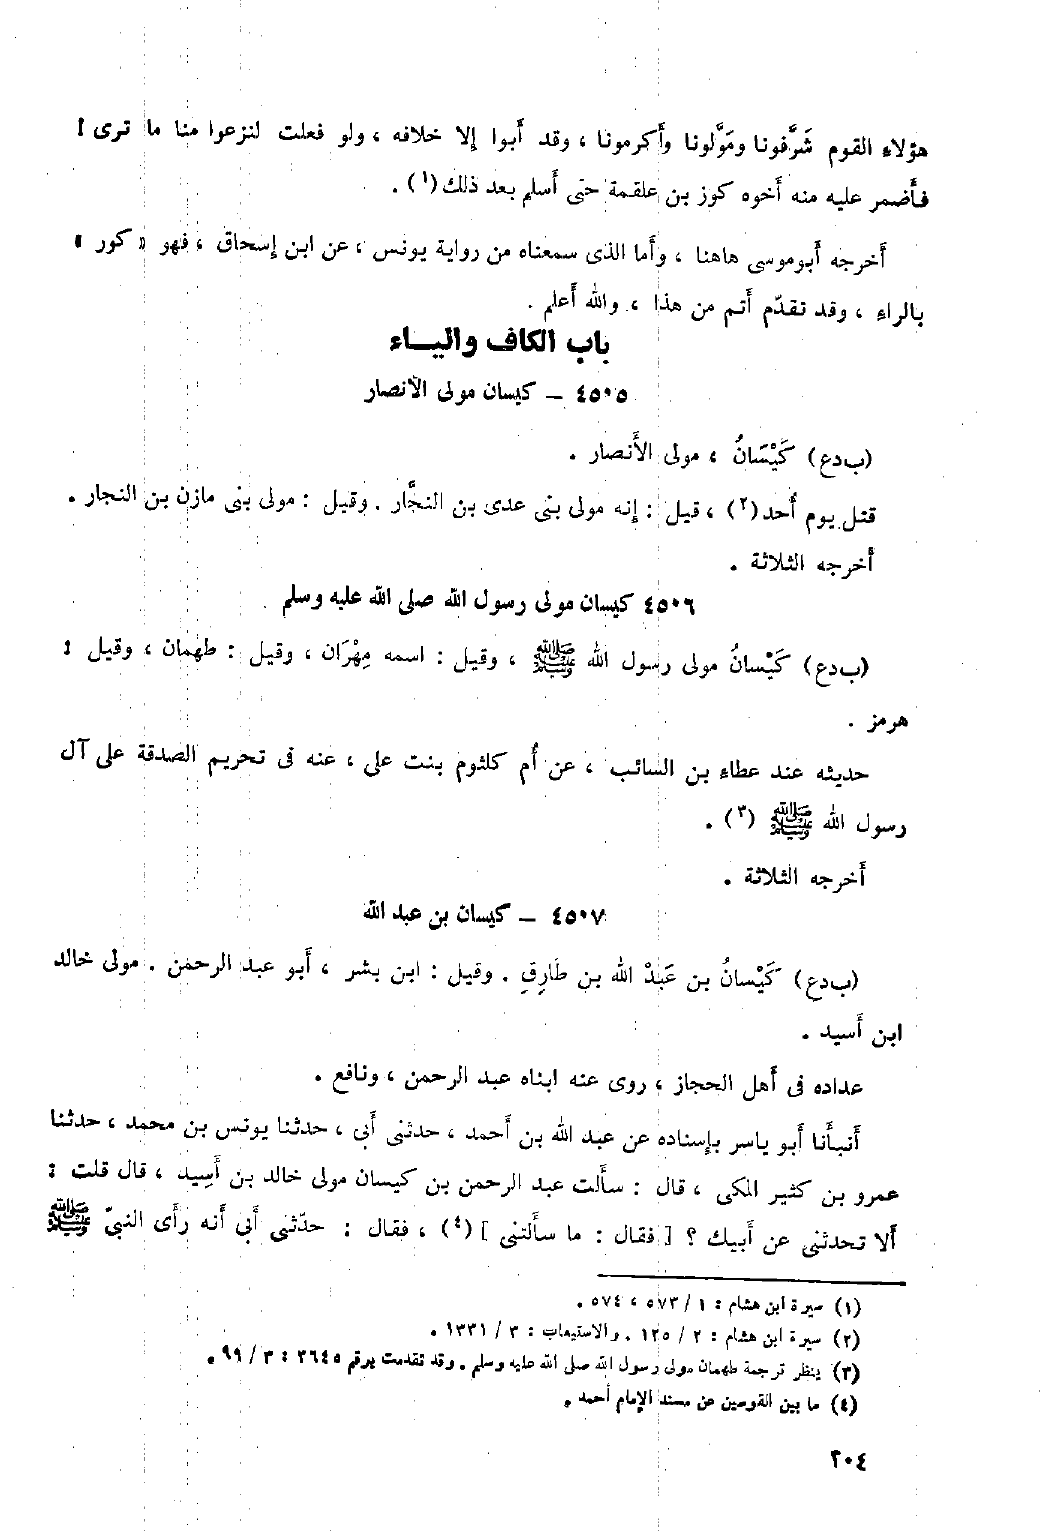 هؤلاء القوم شَرَّفونا ومَوَّلونا وأَكرمونا ، وقد أَبوا إلا خلافه ، ولو فعلت لنزعوا منا ما ترى !
فأَضمر عليه منه أَخوه كوز بن علقمة حتى أَسلم بعد ذلك (١) .
أَخرجه أَبوموسى هاهنا ، وأَما الذى سمعناه من رواية يونس ، عن ابن إسحاق ، فهو « كور »
بالراءِ ، وقد تقدّم أَتم من هذا ، والله أَعلم .
باب الكاف واليـــاء
٤٥٠٥ – كيسان مولى الأنصار
(ب دع) كَيْسَانُ ، مولى الأَنصار .
قتل يوم أُحد (٢) ، قيل : إنه مولى بنى عدى بن النجَّار . وقيل : مولى بنى مازن بن النجار .
أَخرجه الثلاثة .
٤٥٠٦ كيسان مولى رسول الله صلى الله عليه وسلم
(ب دع) كَيْسانُ مولى رسول الله ﷺ ، وقيل : اسمه مِهْرَان ، وقيل : طهمان ، وقيل :
هرمز .
حديثه عند عطاء بن السائب ، عن أُم كلثوم بنت على ، عنه فى تحريم الصدقة على آل
رسول الله ﷺ (٣) .
أَخرجه الثلاثة .
٤٥٠٧ – كيسان بن عبد الله
(ب دع) كَيْسانُ بن عَبْدْ الله بن طَارِقِ . وقيل : ابن بشر ، أَبو عبد الرحمن . مولى خالد
ابن أَسيد .
عداده فى أَهل الحجاز ، روى عنه ابناه عبد الرحمن ، ونافع .
أَنبأَنا أَبو ياسر بإسناده عن عبد الله بن أَحمد ، حدثنى أَبى ، حدثنا يونس بن محمد ، حدثنا
عمرو بن كثير المكى ، قال : سأَلت عبد الرحمن بن كيسان مولى خالد بن أَسِيد ، قال قلت :
أَلا تحدثنى عن أَبيك ؟ [ فقال : ما سأَلتنى ] (٤) ، فقال : حدّثنى أَبى أَنه رأَى النبىّ ﷺ
(١) سيرة ابن هشام : ١ / ٥٧٣ ، ٥٧٤ .
(٢) سيرة ابن هشام : ٢ / ١٢٥ . والاستيعاب : ٣ / ١٣٣١ .
(٣) ينظر ترجمة طهمان مولى رسول الله صلى الله عليه وسلم . وقد تقدمت برقم ٢٦٤٥ : ٣ / ٩٩ .
(٤) ما بين القوسين عن مسند الإمام أحمد .
٢٠٤